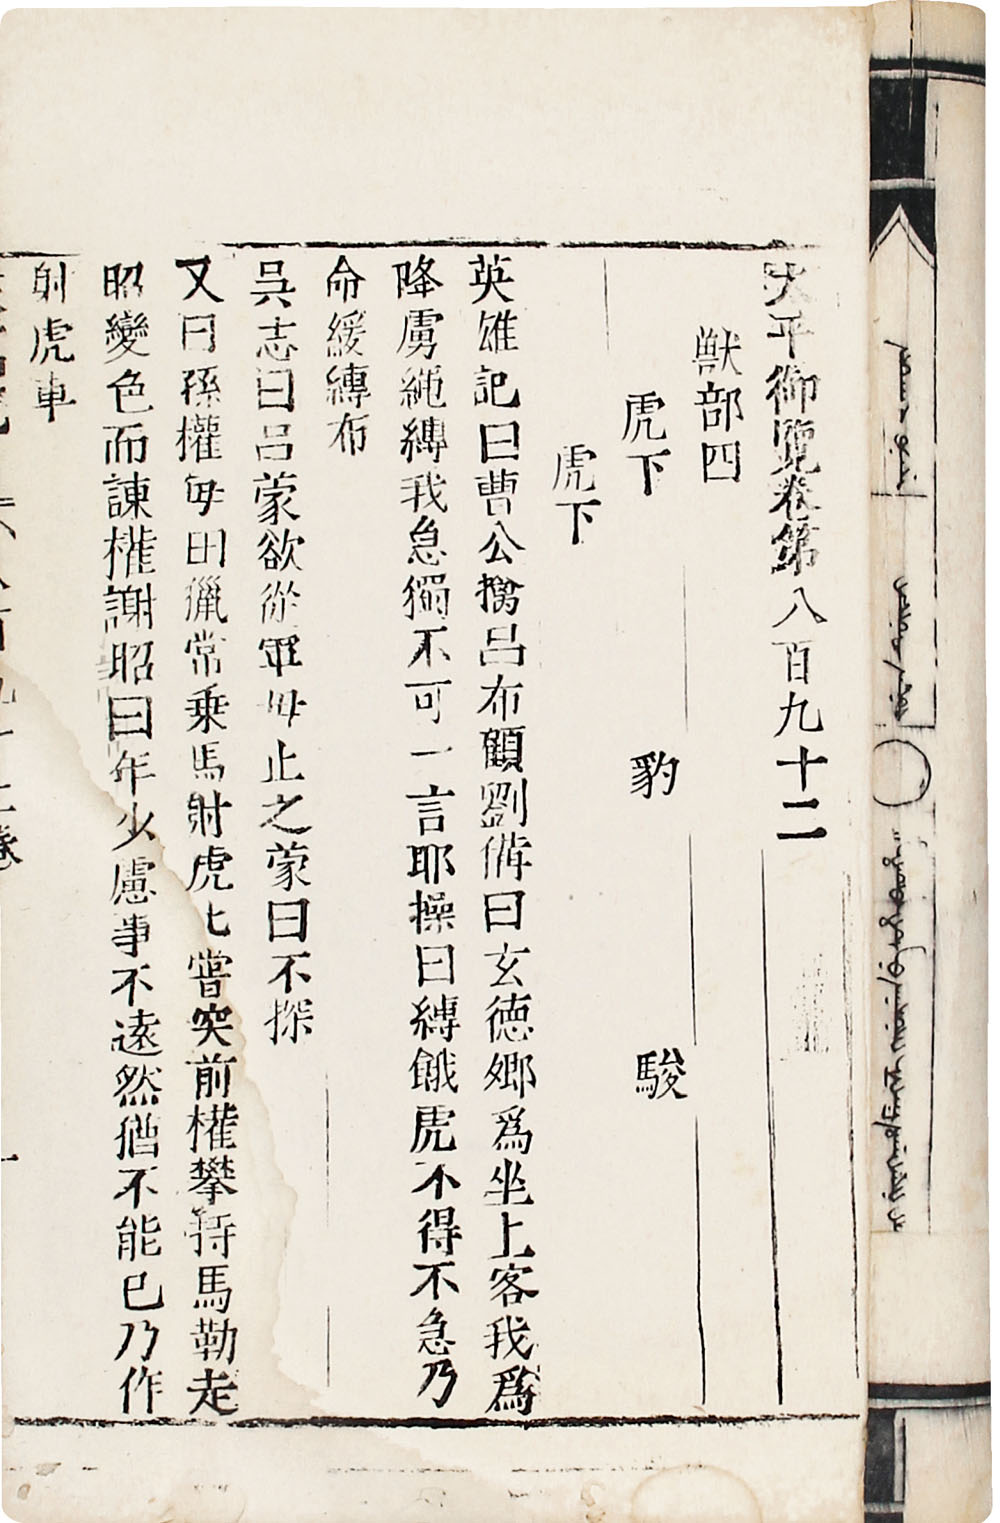 太平御覽卷第八百九十二
獸部四
虎下 豹 駿
虎下
英雄記曰曹公擒呂布顧劉備曰玄德卿爲坐上客我爲
降虜繩縛我急獨不可一言耶操曰縛餓虎不得不急乃
命緩縛布
吳志曰呂蒙欲從軍母止之蒙曰不探
又曰孫權每田獵常乗馬射虎虎嘗突前權攀持馬勒走
昭變色而諫權謝昭曰年少慮事不遠然猶不能已乃作
射虎車